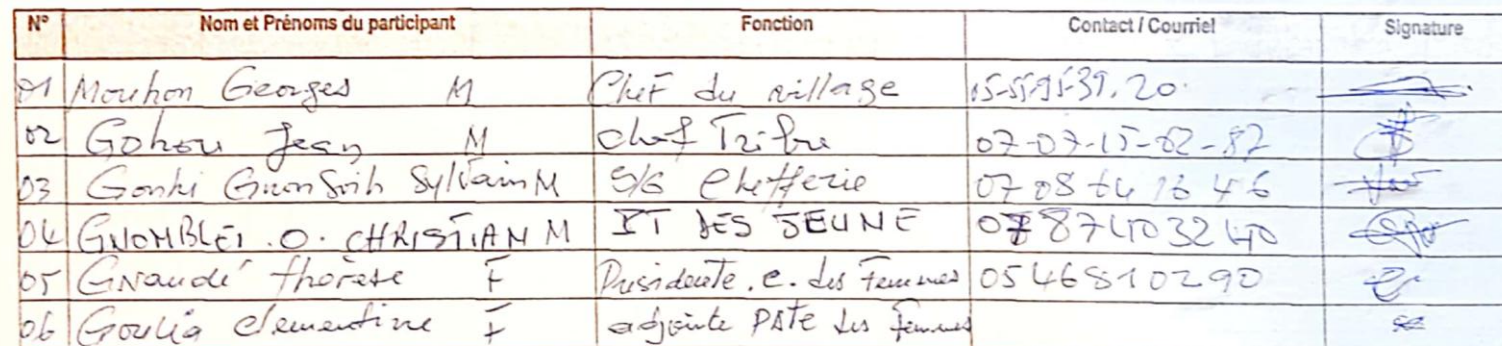 N° Nom et Prénoms du participant Fonction Contact / Courriel Signature
01 Mouhon Georges M Chef du village 05-55-95-39.20.
02 Gohou Jean M chef Tribu 07-07-15-02-87
03 Gonhi Sylvain M S/G Chefferie 07 08 64 16 46
04 GNOMBLEI .O. CHRISTIAN M DES JEUNE 0787403240
05 Gnaudé therese F Présidente .e. des Femmes 0546810290
06 Goulia clementine F adjointe PDTE des femmes